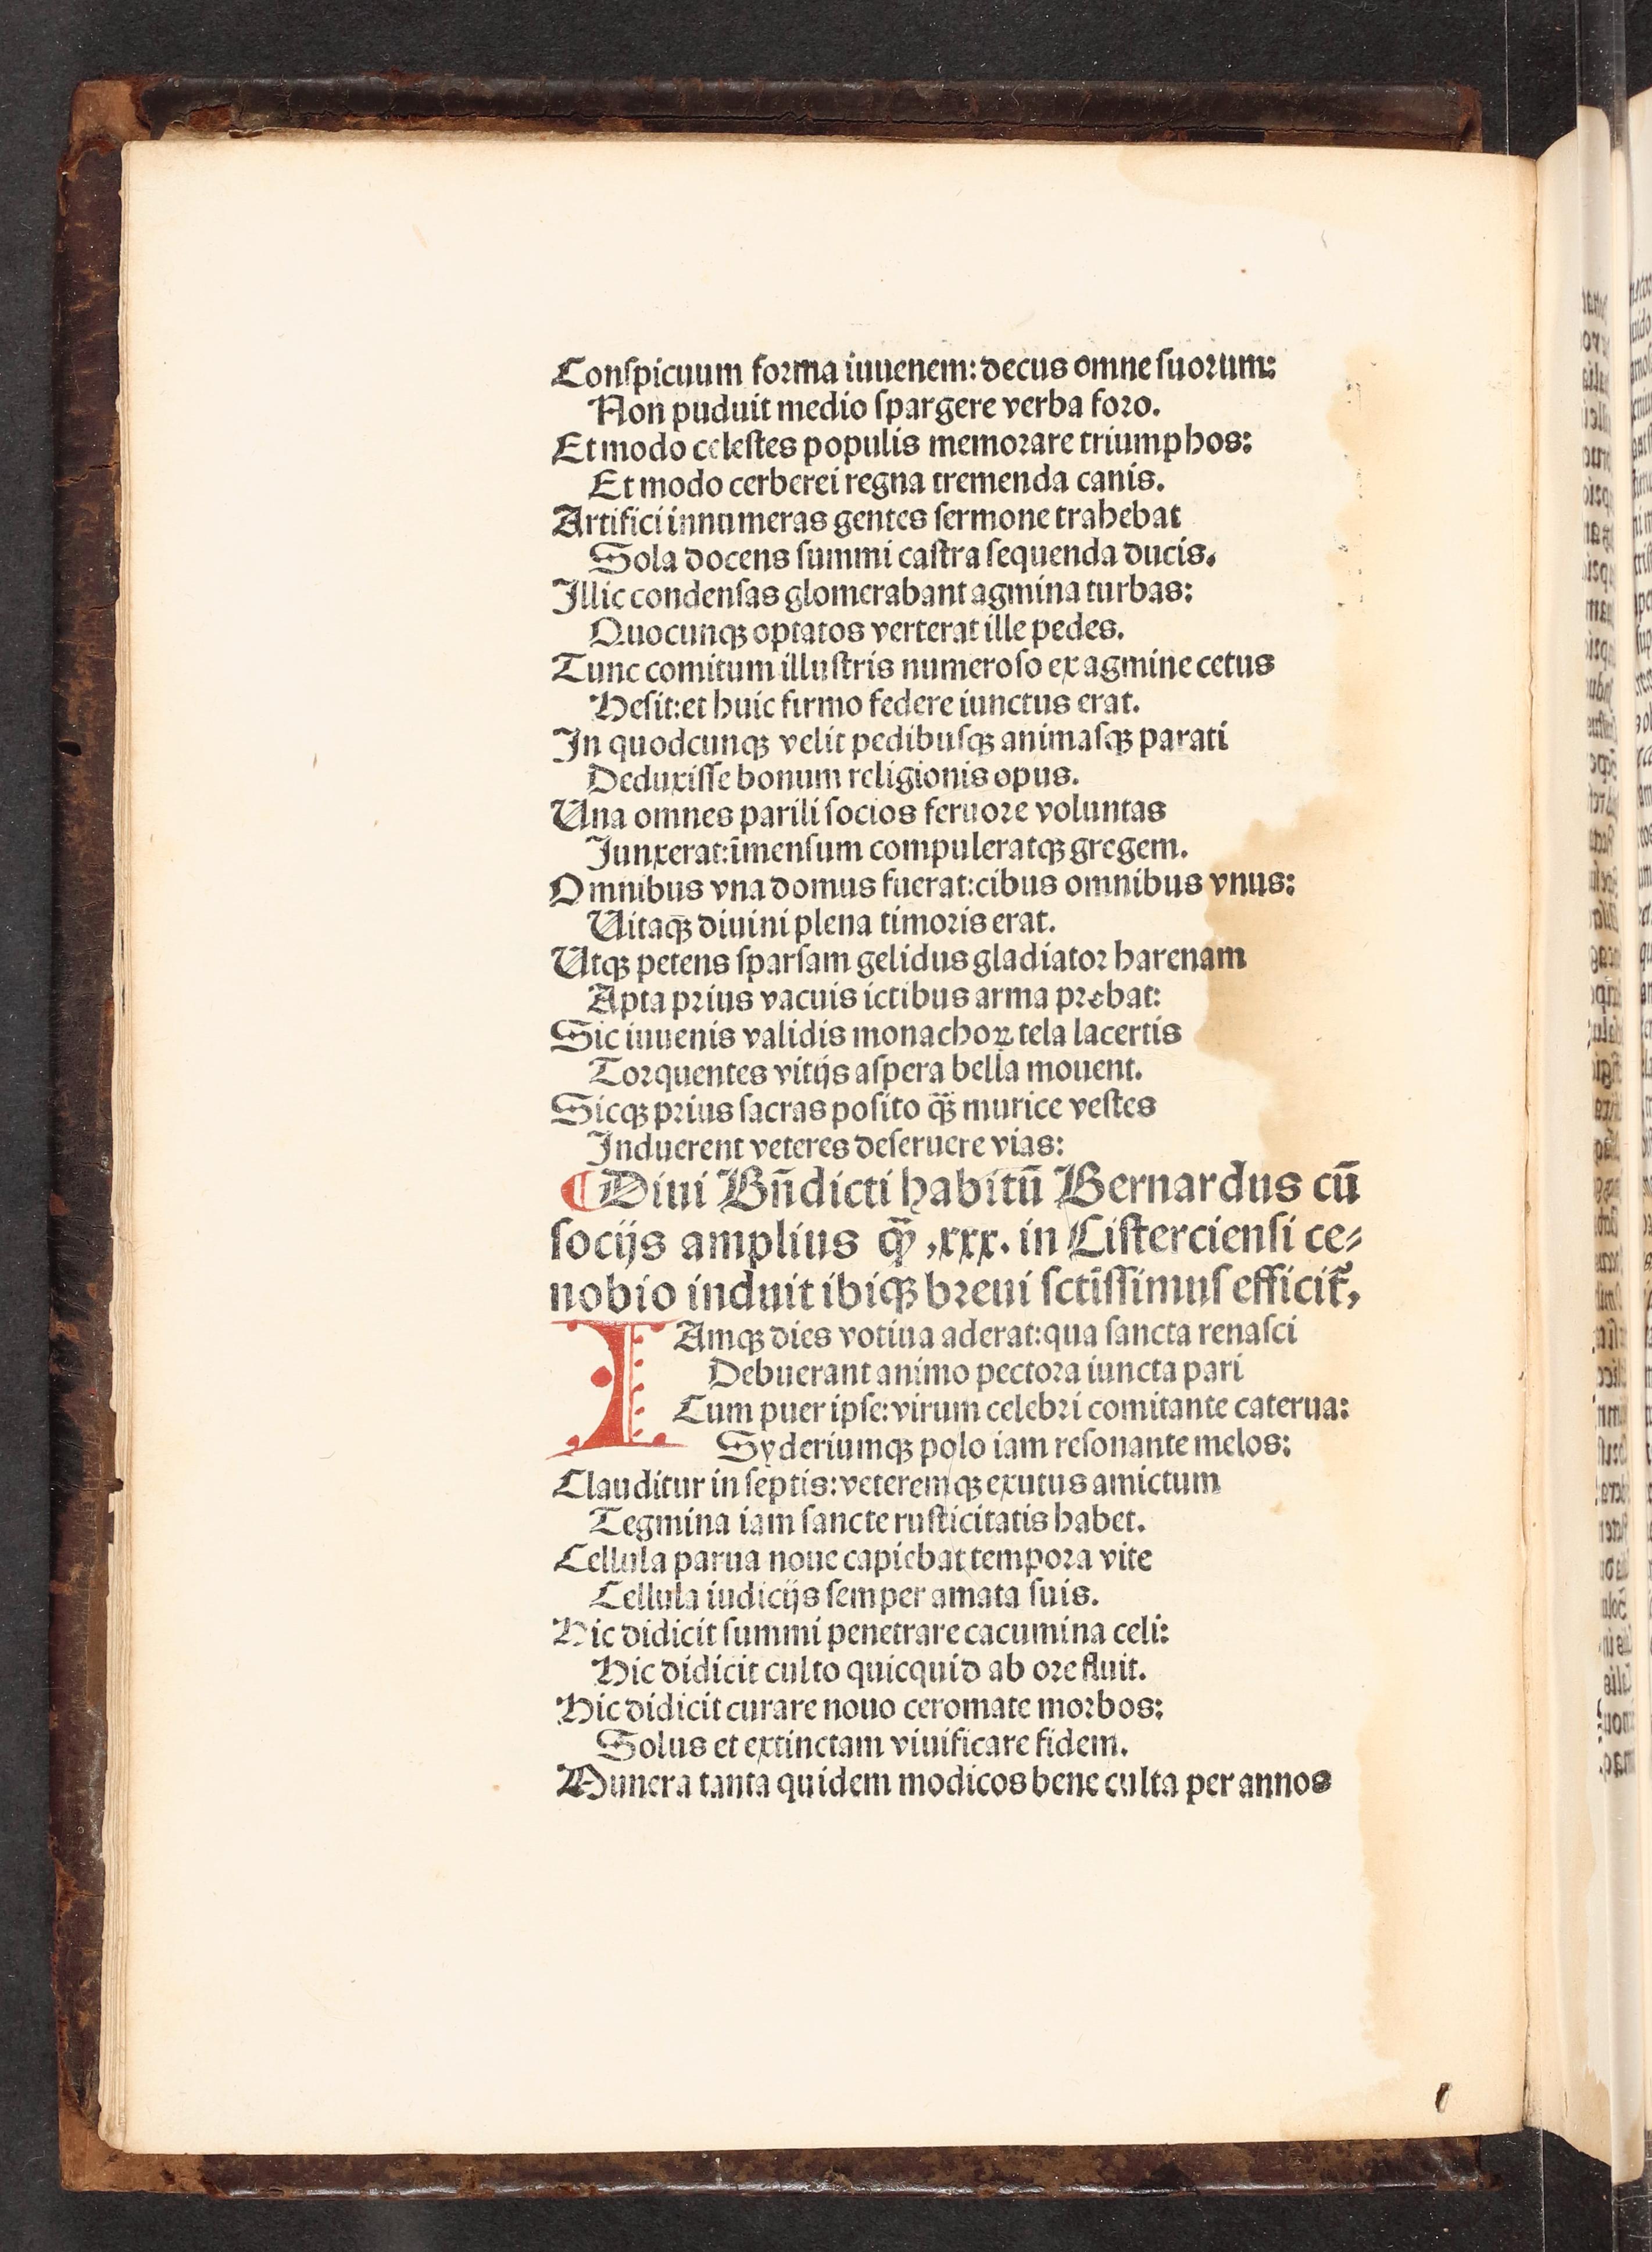 Conſpicuum forma iuuenem: decus omne ſuorum:
Non puduit medio ſpargere verba foro.
Et modo celeſtes populis memorare triumphos:
Et modo cerberei regna tremenda canis.
Artifici innumeras gentes ſermone trahebat
Sola docens ſummi caſtra ſequenda ducis.
Illic condenſas glomerabant agmina turbas:
Quocunqꝫ optatos verterat ille pedes.
Tunc comitum illuſtris numeroſo ex agmine cetus
Heſit: et huic firmo federe iunctus erat.
In quodcunqꝫ velit pedibuſqꝫ animaſqꝫ parati
Deduxiſſe bonum religionis opus.
Una omnes parili ſocios feruore voluntas
Junxerat: īmenſum compuleratqꝫ gregem.
Omnibus vna domus fuerat: cibus omnibus vnus:
Uitaqꝫ̄ diuini plena timoris erat.
Utqꝫ petens ſparſam gelidus gladiator harenam
Apta prius vacuis ictibus arma probat:
Sic iuuenis validis monachoꝝ tela lacertis
Torquentes vitijs aſpera bella mouent.
Sicqꝫ prius ſacras poſito qꝫ̄ murice veſtes
Induerent veteres deſeruere vias:
¶ Diui Bn̄dicti habitū Bernardus cū
ſocijs amplius qꝫ̄ .xxx. in Ciſtercienſi ce⸗
nobio induit ibiqꝫ breui ſctīſſimuſ efficit᷑,
IAmqꝫ dies votiua aderat: qua ſancta renaſci
Debuerant animo pectora iuncta pari
Cum puer ipſe: virum celebri comitante caterua:
Syderiumqꝫ polo iam reſonante melos:
Clauditur in ſeptis: veteremqꝫ exutus amictum
Tegmina iam ſancte ruſticitatis habet.
Cellula parua noue capiebat tempora vite
Cellula iudicijs ſemper amata ſuis.
Hic didicit ſummi penetrare cacumina celi:
Hic didicit culto quicquid ab ore fluit.
Hic didicit curare nouo ceromate morbos:
Solus et extinctam viuificare fidem.
Munera tanta quidem modicos bene culta per annos